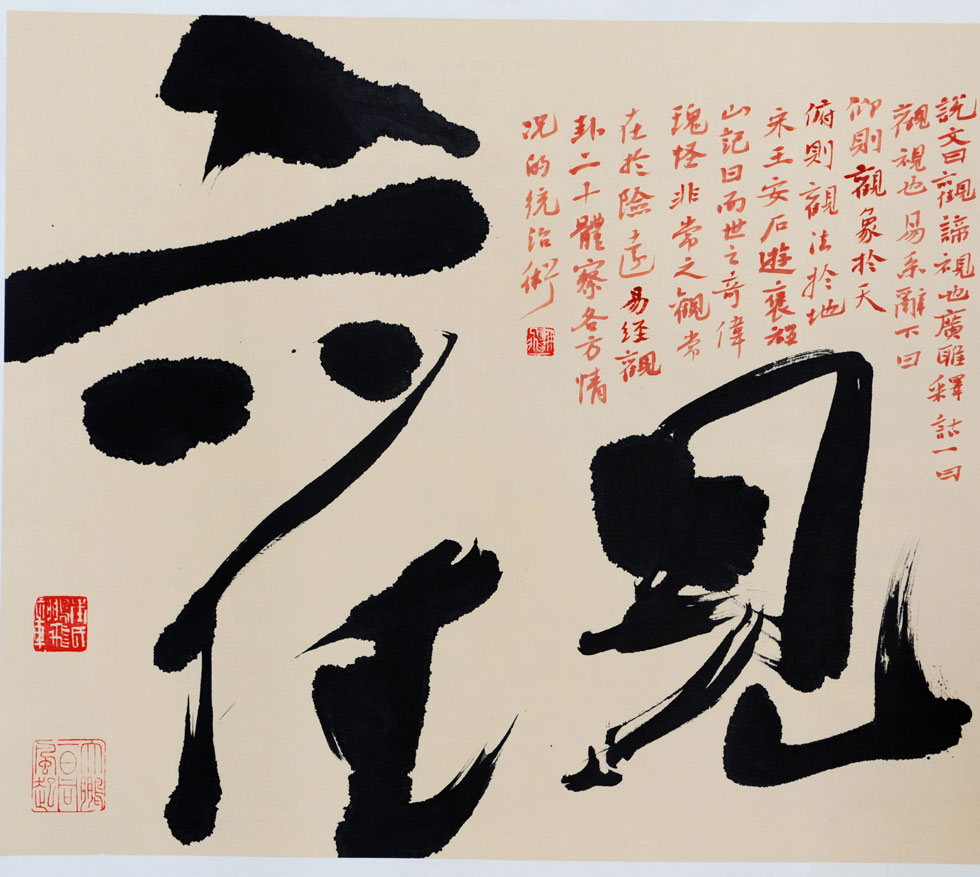 觀
說文曰觀諦視也廣雅釋詁一曰
觀視也易系辭下曰
仰則觀象於天
俯則觀法於地
宋王安石遊褒禪
山記曰而世之奇偉
瑰怪非常之觀常
在於險遠易經觀
卦二十體察各方情
况的統治術
大鵬一日同風起